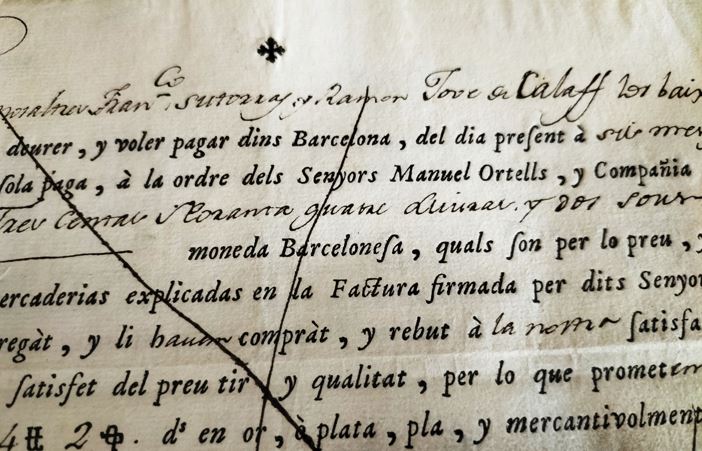 nosaltres Franco. sutorras y Ramon Tove de Calaff los baix
deurer, y voler pagar dins Barceſona, del dia preſent à sis mes
ſola paga, à la ordre dels Senyors Manuel Ortells, y Compañia
Tres Centas Noranta quatre lliuras. y dos sous
moneda Barceloneſa, quals ſon per lo preu, y
ercaderias explicadas en la Factura firmada per dits Senyor
regàt, y li havem compràt, y rebut à la nostra ſatisfa
ſatisfet del preu tir, y qualitat, per lo que prometem
4 ℔ 2 ф. ds en or, ò plata, pla, y mercantivolment